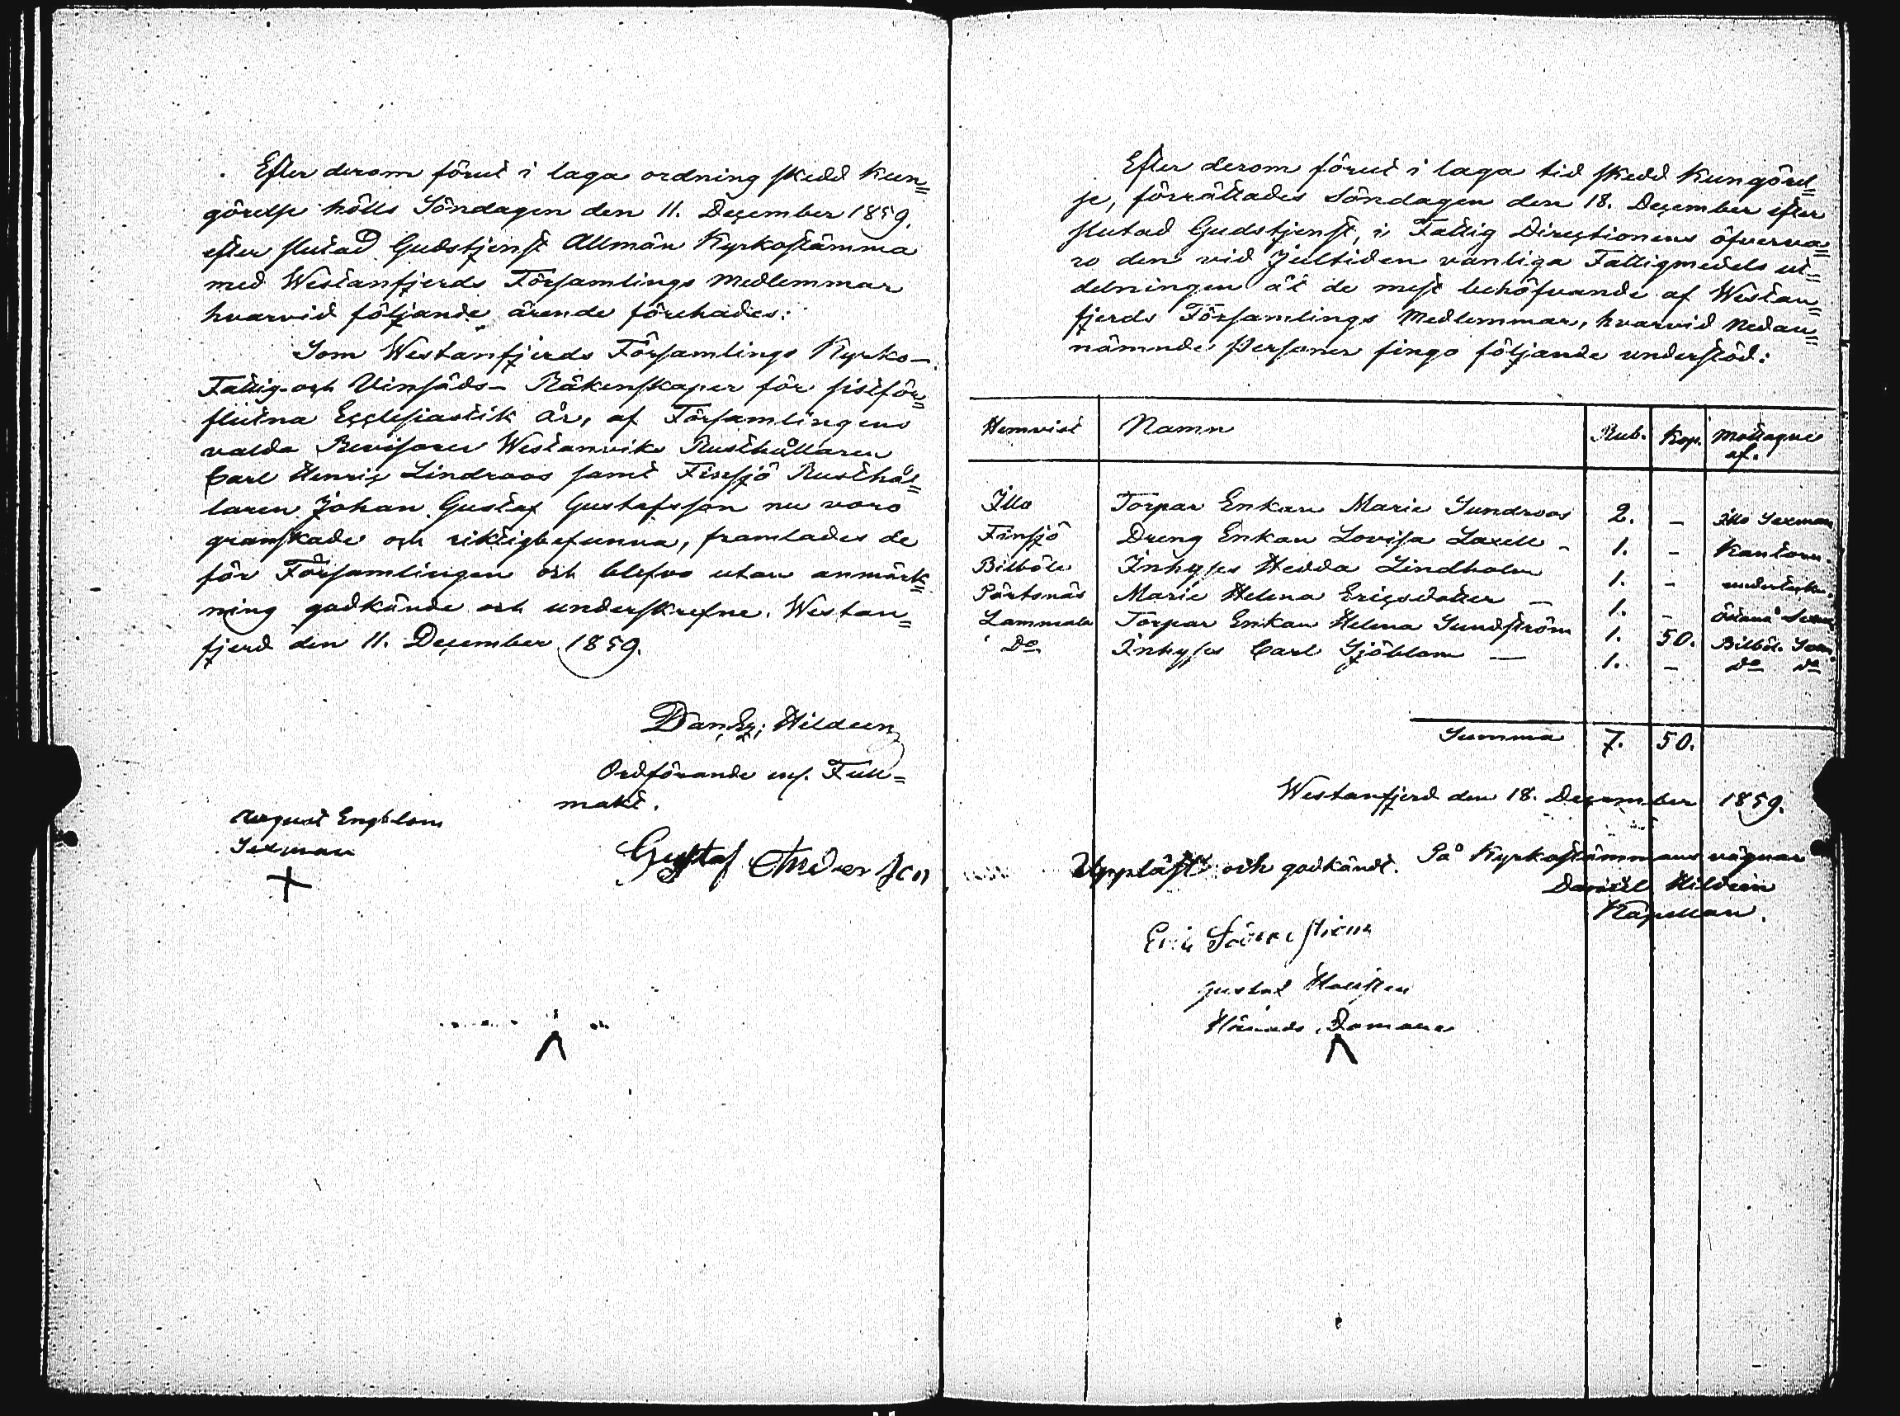 Efter derom förut i laga ordning skedd kun=
görelse hölls Söndagen den 11. December 1859,
efter slutad Gudstjenst Allmän Kyrkostämma
med Westanfjerds Församlings medlemmar
hvarvid följande ärende förehades:
Som Westanfjerds Församlings Kyrko-
Fattig- och Vinsäds- Räkenskaper för sistför=
flutna Ecclesiastik år, af Församlingens
valda Revisorer Westanviks Rusthållaren
Carl Henric Lindroos samt Finsjö Rusthål=
laren Johan Gustaf Gustafsson nu voro
granskade och riktigbefunna, framlades de
för Församlingen och blefvo utan anmärk=
ning godkände och underskrefne. Westan=
fjerd den 11. December 1859.
Dan. Ez: Hildeen
Ordförande enl. Full=
makt.
August Engblom
Sexman
Gustaf Anderson
Efter derom förut i laga tid skedd kungörel=
se, förrättades Söndagen den 18. December efter
slutad Gudstjenst, i Fattig Directionens öfverva=
ro den vid Jultiden vanliga Fattigmedels ut=
delningen åt de mest behöfvande af Westan=
fjerds Församlings Medlemmar, hvarvid nedan=
nämnde Personer fingo följande understöd:
Hemvist Namn Rub. Kop. Mottagne
af.
Illo Torpar Enkan Maria Sundroos 2. – Illo Sexman
Finsjö Dreng Enkan Lovisa Laxell – 1. – Kantorn.
Bilböle Inhyses Hedda Lindholm 1. –
Pörtsnäs Maria Helena Ericsdotter – 1. –
Lammala Torpar Enkan Helena Sundström 1. 50. Bilböl. Sexm.
Do Inhyses Carl Sjöblom – 1. – do do
Summa 7. 50.
Westanfjerd den 18. December 1859.
På Kyrkostämmans vägnar
Uppläst och godkändt.
Daniel Hildeen
Kapellan.
Gustaf